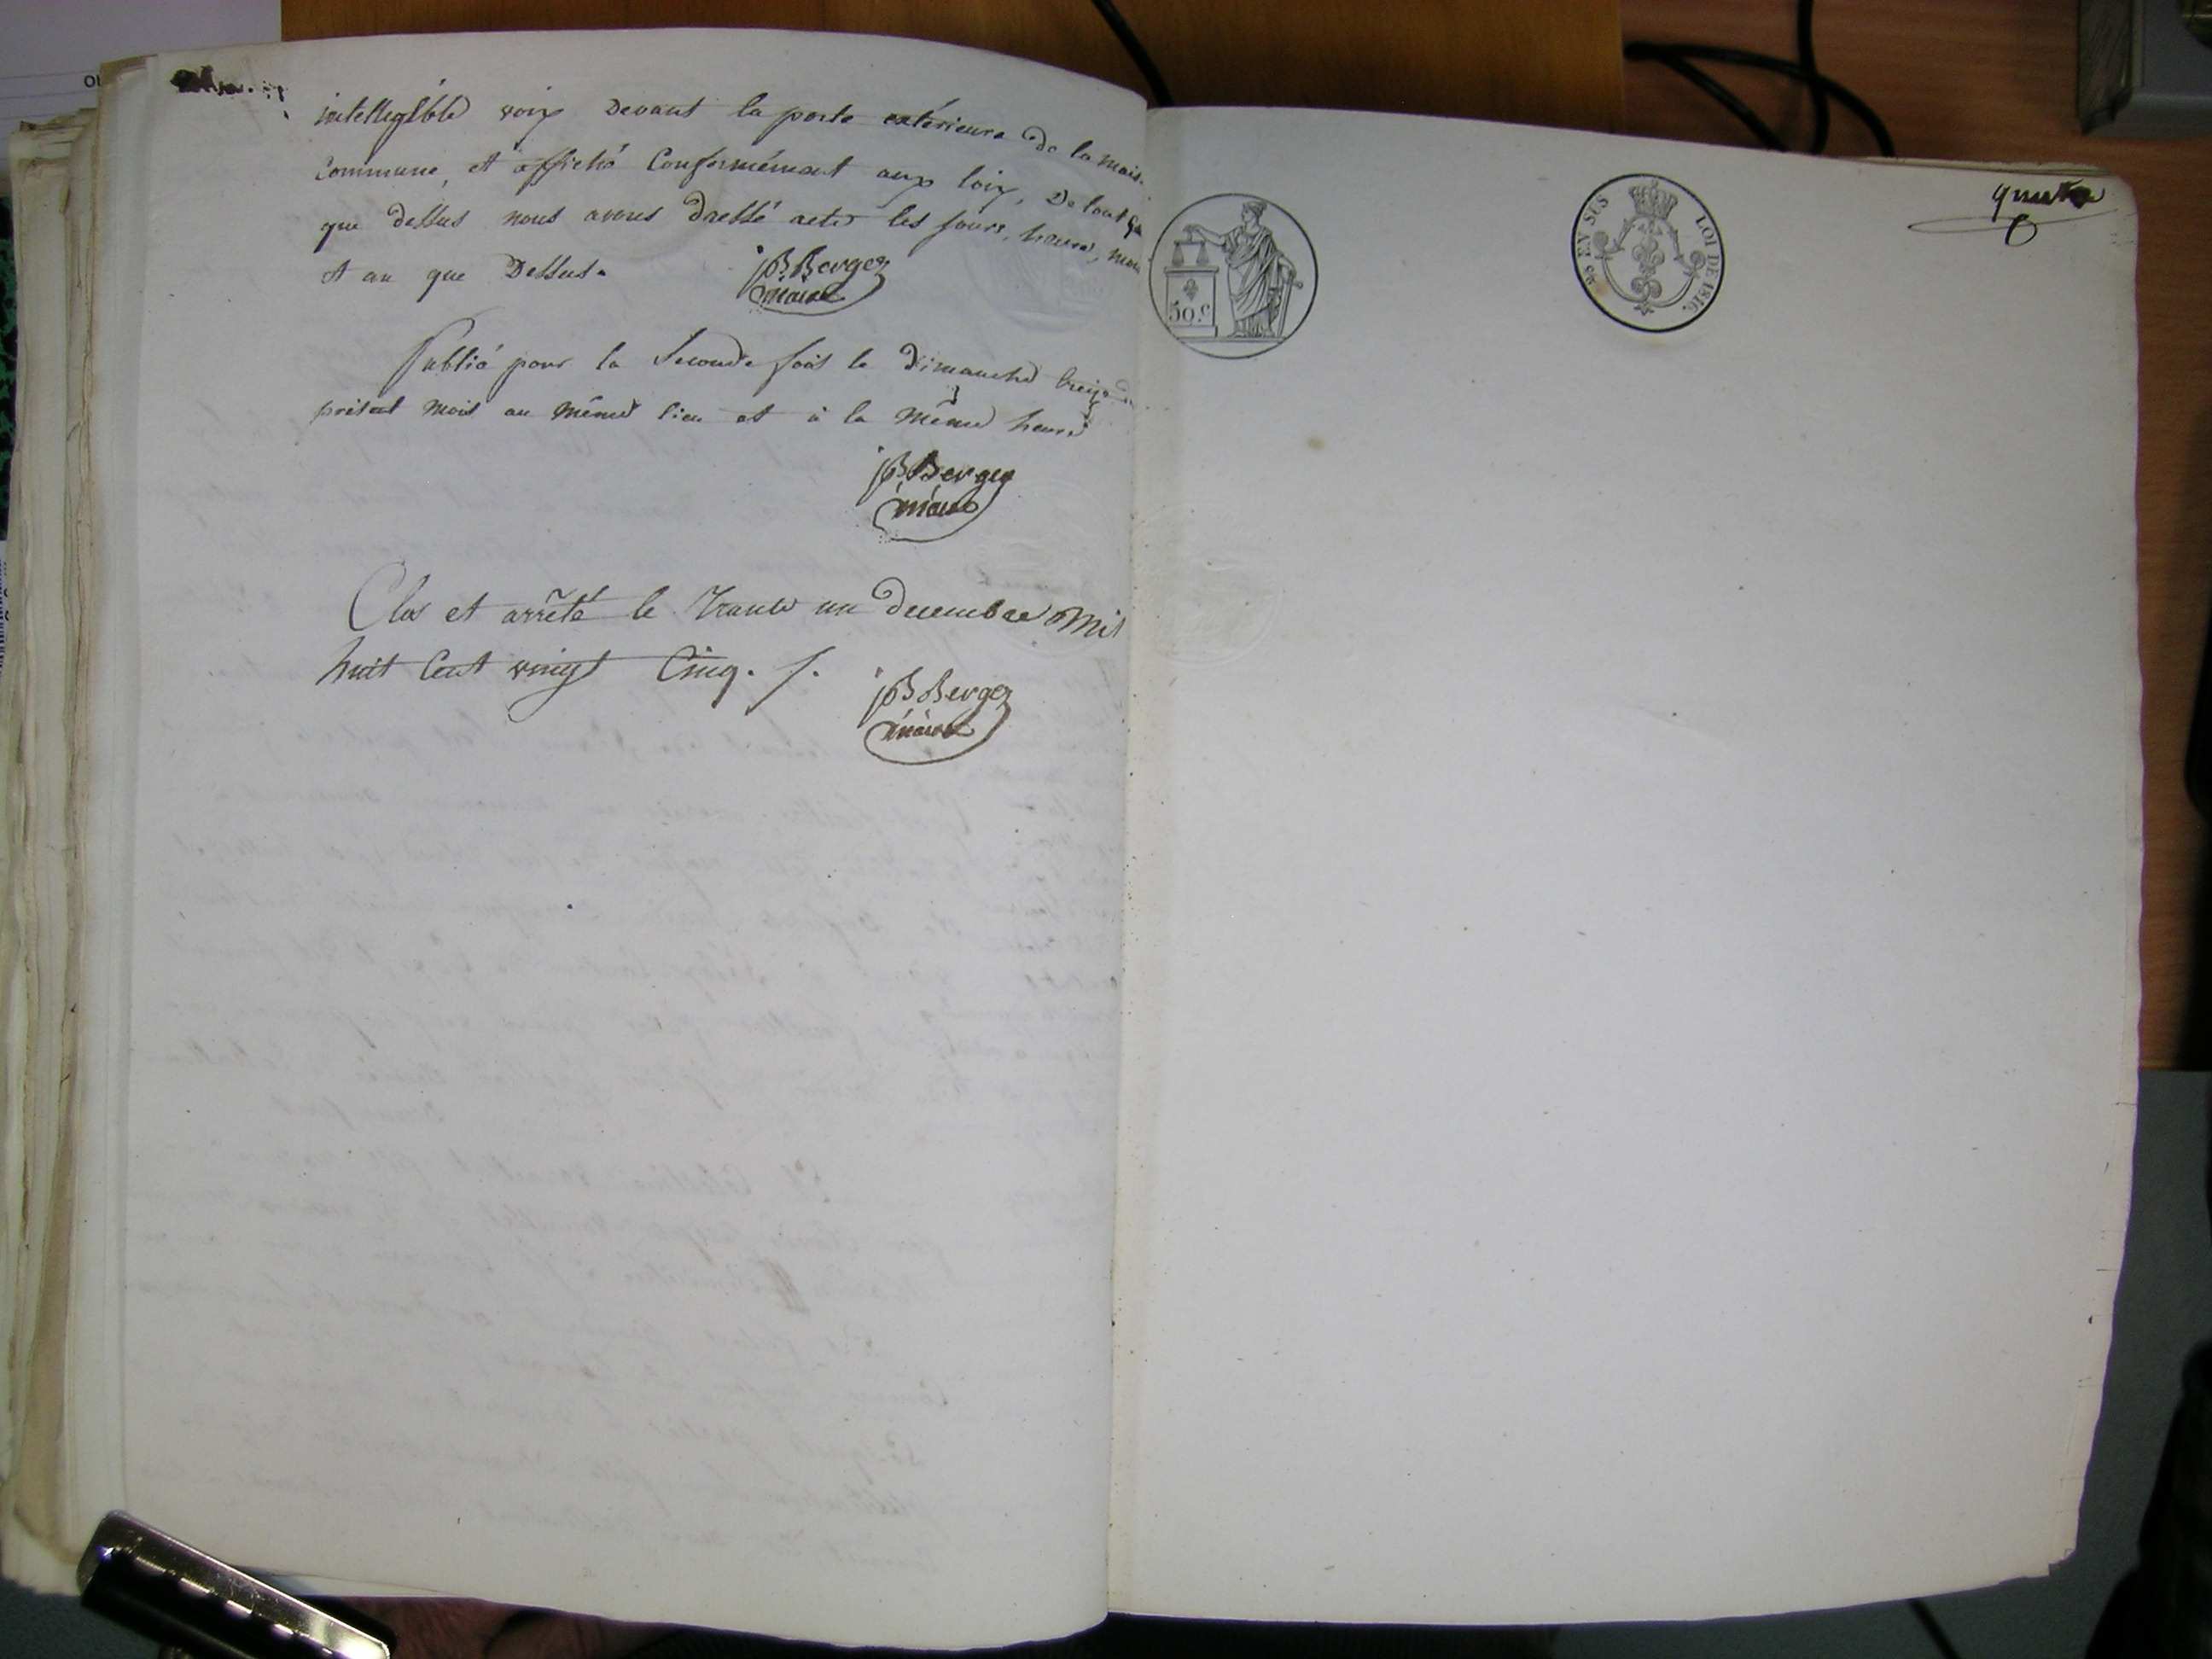 intelligible voix devant la porte extérieure de la mais.
Commune, et affiché Conformément aux loix, De tout ce
que dessus nous avons dressé acte les jours, heure, mois
et an que Dessus.
jB Berger
maire
Publié pour la Seconde fois le dimanche treize du
présent mois au même lieu et à la même heure
jB Berger
maire
Clos et arrêté le Trente un decembre Mil
huit Cent vingt Cinq. /.
jB Berger
maire
50.C
EN SUS
LOI DE 1816.